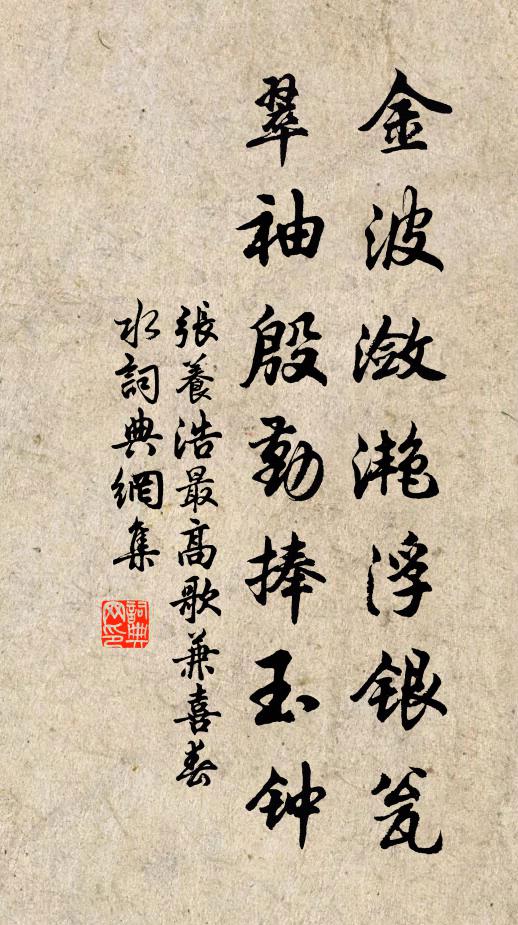 金波瀲灔浮銀瓮
翠袖殷勤捧玉钟
張養浩最高歌兼喜春
水詞典網集
詞典網印